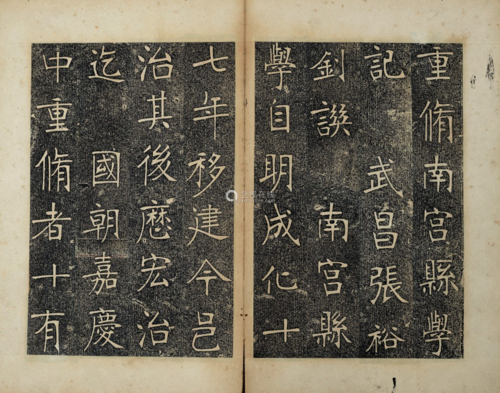 重脩南宮縣學
記　武昌張裕
釗譔　南宮縣
學自明成化十
七年移建今邑
治其後歷宏治
迄　國朝嘉慶
中重脩者十有